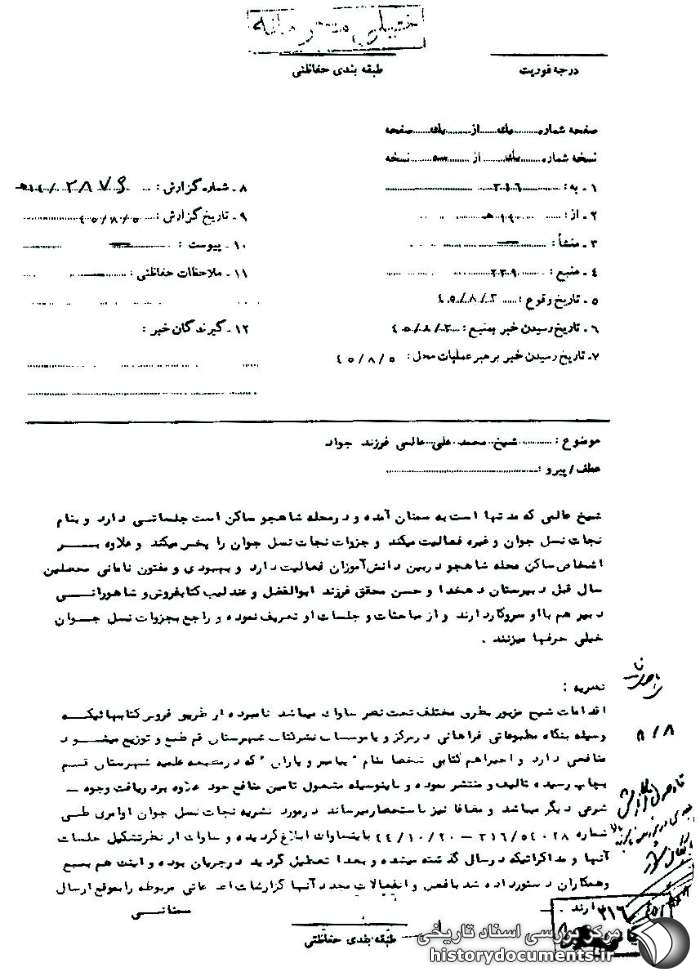 خیلی محرمانه
درجه فوریت
طبقه بندی حفاظتی
صفحه شماره یك از یك صفحه
نسخه شماره یك از سه نسخه
۱ ـ به : ۳۱۶
۲ ـ از : ۱۴ هـ
۳ ـ منشأ : —
۴ ـ منبع : ۲۳۹۰
۵ ـ تاریخ وقوع : ۴۵/۸/۳
۶ ـ تاریخ رسیدن خبر بمنبع : ۴۵/۸/۳
۷ ـ تاریخ رسیدن خبر برهبر عملیات محل : ۴۵/۸/۵
۸ ـ شماره گزارش : ۲۸۷۶/۱۴ه
۹ ـ تاریخ گزارش : ۴۵/۸/۵
۱۰ ـ پیوست : —
۱۱ ـ ملاحظات حفاظتی :
۱۲ ـ گیرندگان خبر :
موضوع : شیخ محمد علی عالمی فرزند جواد
عطف / پیرو :
شیخ عالمی که مدتها است به سمنان آمده و در محله شاهجو ساکن است جلساتی دارد و بنام
نجات نسل جوان و غیره فعالیت میکند و جزوات نجات نسل جوان را پخش میکند و علاوه بر
اشخاص ساکن محله شاهجو در بین دانش‌آموزان فعالیت دارد و بهبودی و مفتون نامانی محصلین
سال قبل دبیرستان دهخدا و حسن محقق فرزند ابوالفضل و عندلیب کتابفروش و شاهورانی
دبیر هم با او سروکار دارند و از مباحثات و جلسات او تعریف نموده و راجع بجزوات نسل جوان
خیلی حرفها میزنند .
نظریه :
اقدامات شیخ مزبور بطرق مختلف تحت نظر ساواك میباشد نامبرده از طریق فروش کتابهائیکه
وسیله بنگاه مطبوعاتی فراهانی در مرکز و یا موسسات نشر کتاب شهرستان قم طبع و توزیع میشود
منافعی دارد و اخیرا هم کتابی شخصا بنام " پیامبر و یاران " که در مطبعه علمیه شهرستان قم
بچاپ رسیده تالیف و منتشر نموده و باینوسیله مشغول تامین منافع خود علاوه بر دریافت وجوه
شرعی دیگر میباشد و مضافا نیز باستحضار میرساند در مورد نشریه نجات نسل جوان اوامری طی
شماره ۳۱۶/۵۴۰۲۸ – ۴۴/۱۰/۲۰ باینساواك ابلاغ گردیده و ساواك از نظر تشکیل جلسات
آنها و مذاکراتیکه در سال گذشته مینده و بعدا تعطیل گردید در جریان بوده و اینك هم بمنبع
و همکاران دستور داده شد باقعی و انفعالات مجدد آنها گزارشات اطلاعاتی مربوطه را بموقع ارسال
دارند .
سمنانی
۸/۸
۳۱۶
طبقه بندی حفاظتی
مرکز بررسی اسناد تاریخی
historydocuments.ir